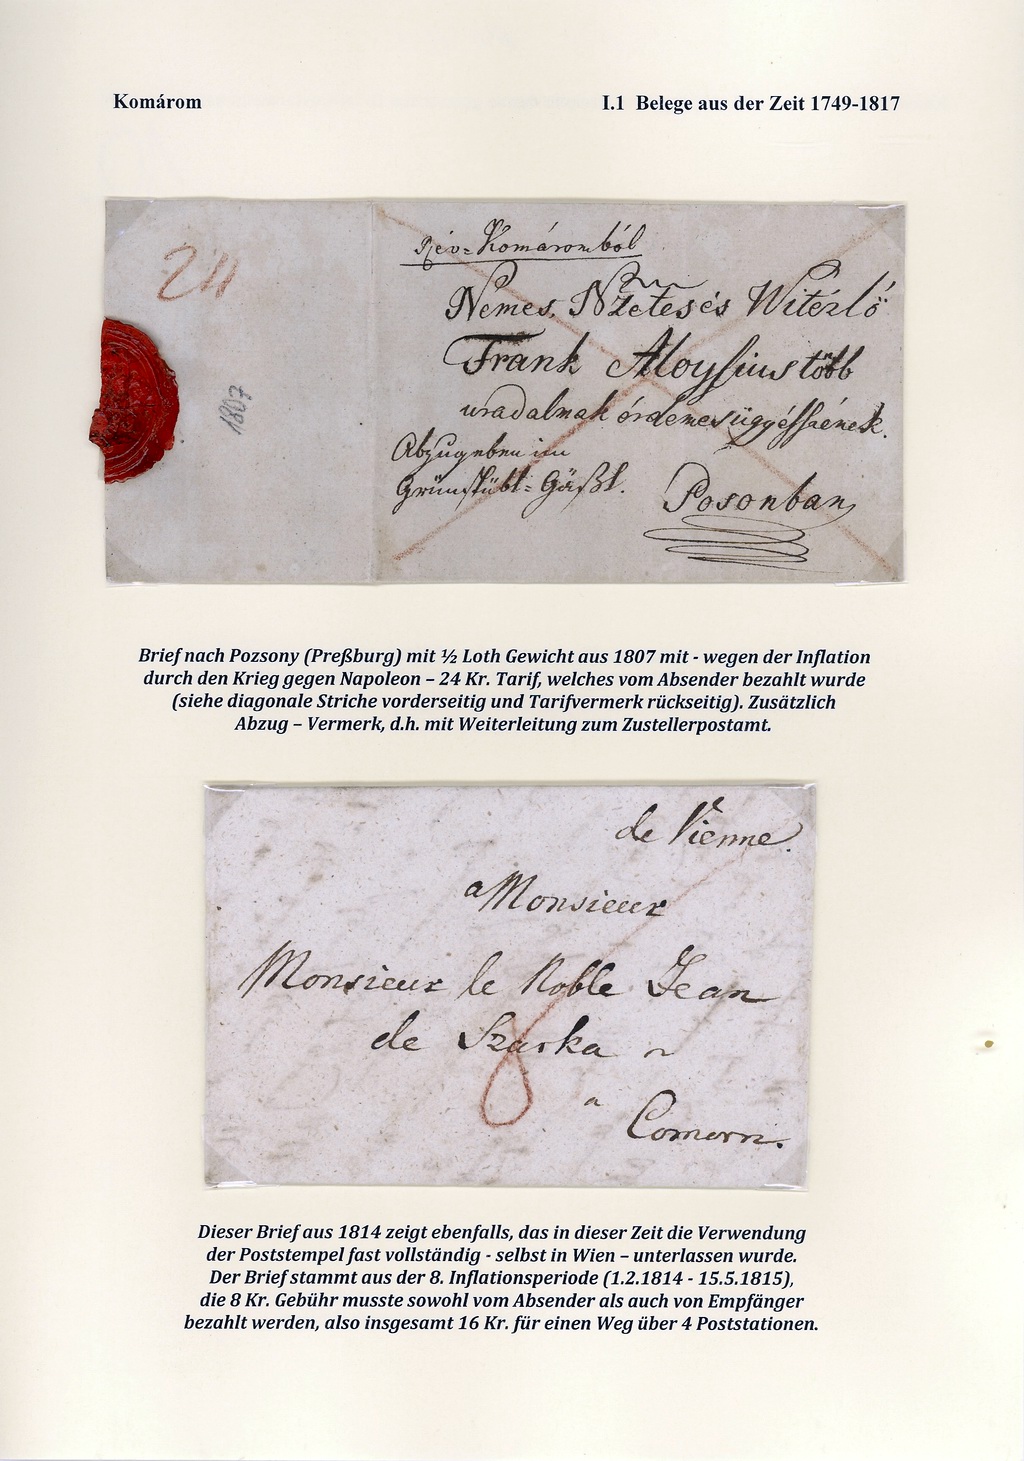 Komárom
I.1 Belege aus der Zeit 1749-1817
24
1807
Rév=Komáromból
Nemes, Nzetes és Witézlő
Frank Aloysius több
uradalmak érdemes ügyéssének.
Abzugeben im
Grünstübl=Gäßl.
Posonban
Brief nach Pozsony (Preßburg) mit ½ Loth Gewicht aus 1807 mit - wegen der Inflation
durch den Krieg gegen Napoleon – 24 Kr. Tarif, welches vom Absender bezahlt wurde
(siehe diagonale Striche vorderseitig und Tarifvermerk rückseitig). Zusätzlich
Abzug – Vermerk, d.h. mit Weiterleitung zum Zustellerpostamt.
de Vienne.
a Monsieur
Monsieur le Noble Jean
de Szarka
8
a
Comorn.
Dieser Brief aus 1814 zeigt ebenfalls, das in dieser Zeit die Verwendung
der Poststempel fast vollständig - selbst in Wien – unterlassen wurde.
Der Brief stammt aus der 8. Inflationsperiode (1.2.1814 - 15.5.1815),
die 8 Kr. Gebühr musste sowohl vom Absender als auch von Empfänger
bezahlt werden, also insgesamt 16 Kr. für einen Weg über 4 Poststationen.